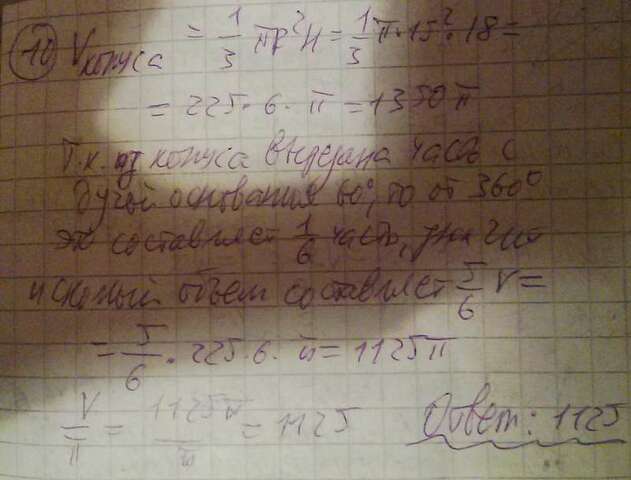 10 Vконуса = 1/3 πR²H = 1/3 π·15²·18 =
= 225·6·π = 1350π
Т.к. из конуса вырезана часть с
дугой основания 60°, то от 360°
это составляет 1/6 часть, значит
искомый объем составляет 5/6 V =
= 5/6 · 225·6·π = 1125π
V/π = 1125π/π = 1125 Ответ: 1125